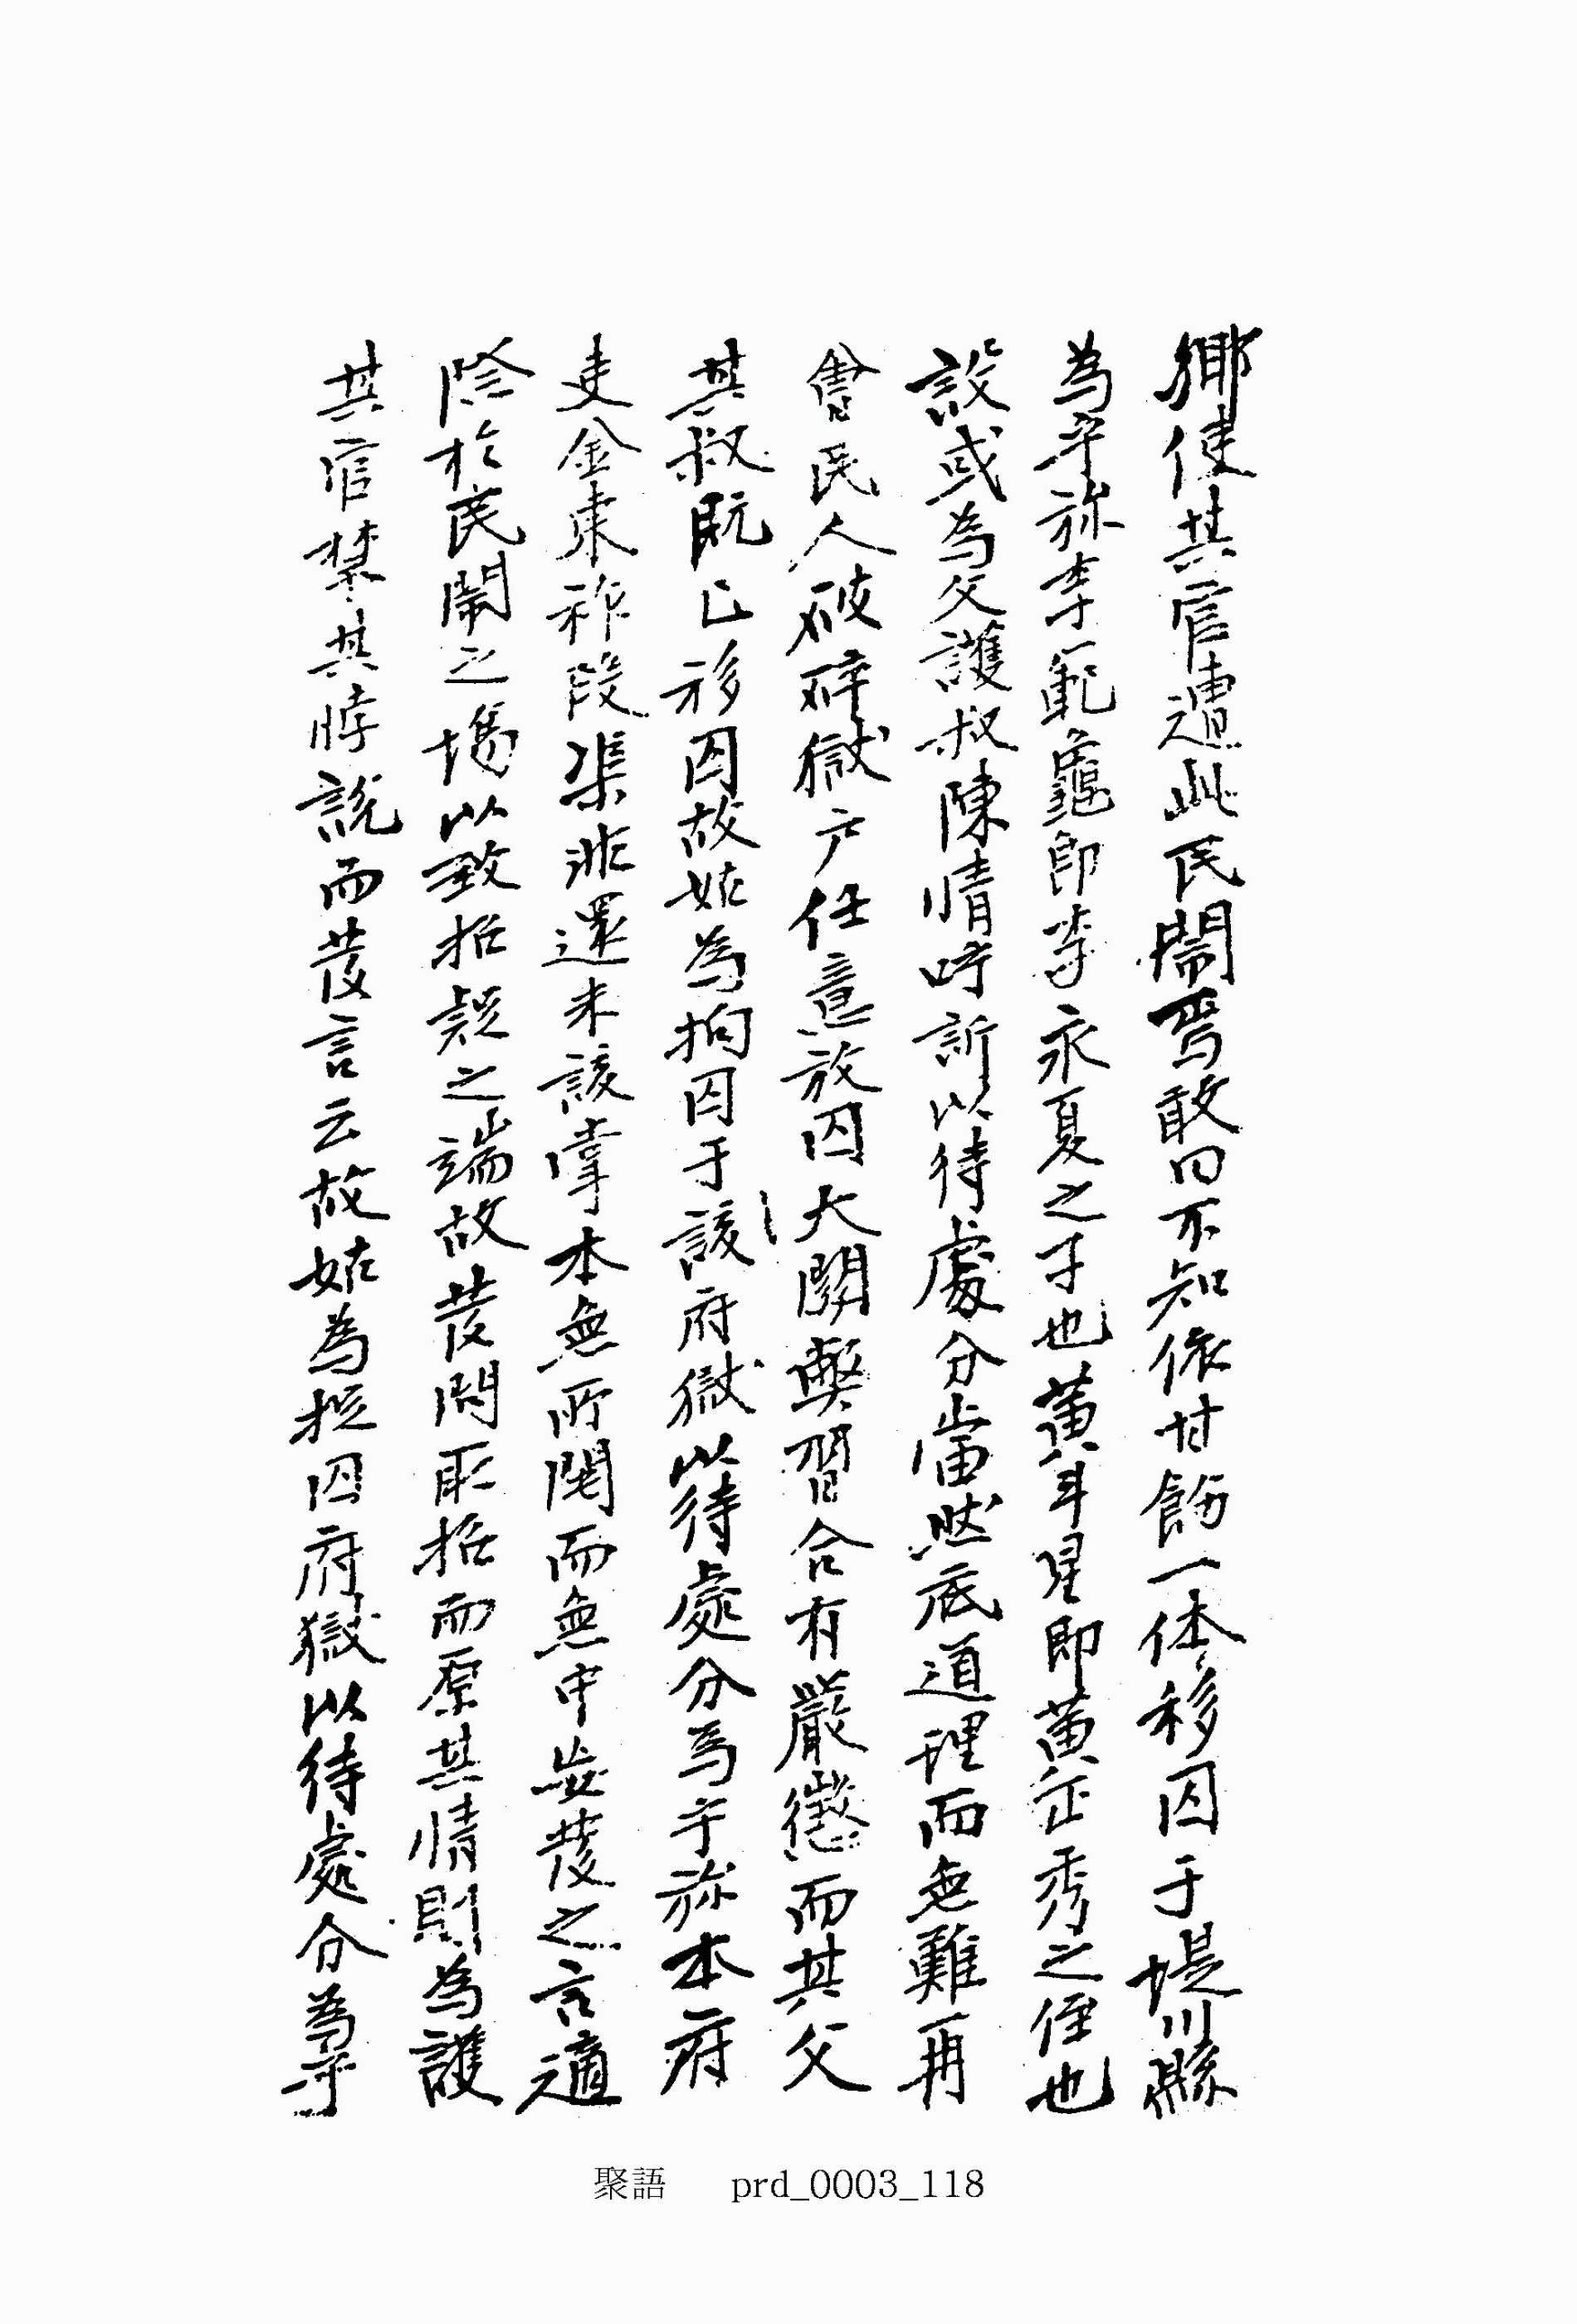 鄕使其官遭此民鬧焉敢曰不知依甘飭一体移囚于堤川縣
為乎旀李範龜卽李永夏之子也黃斗星卽黃正秀之侄也
設或為父護叔陳情呼訴以待處分當然底道理而無難再
會民人破碎獄户任意放囚大關弊習合有嚴懲而其父
其叔既已移囚故姑為拘囚于該府獄以待處分為乎旀本府
吏金東祚段渠非還米該掌本無所関而無中生發之言適
陰於民鬧之場以致招疑之端故發問取招而原其情則為護
其官禁其悖說而發言云故姑為捉囚府獄以待處分為乎
聚語 prd_0003_118